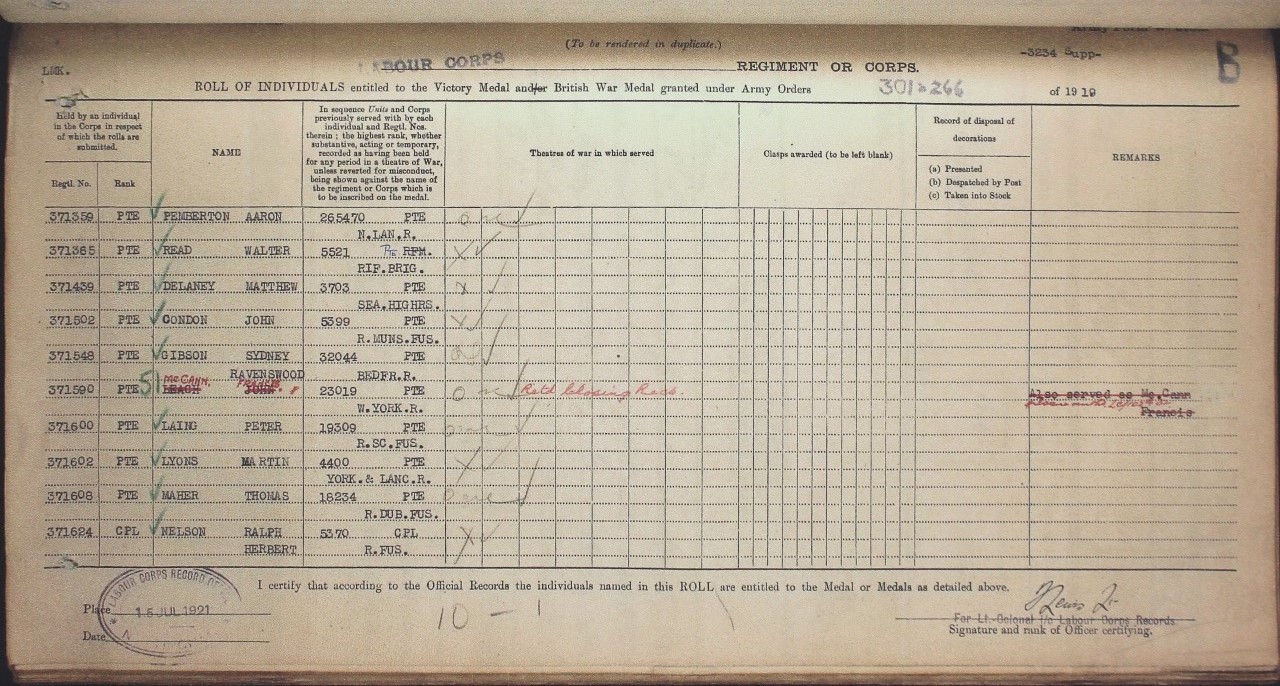 (To be rendered in duplicate.)
-3234 Supp-
B
LMK.
LABOUR CORPS REGIMENT OR CORPS.
ROLL OF INDIVIDUALS entitled to the Victory Medal and/or British War Medal granted under Army Orders 301 & 266 of 1919
Held by an individual in the Corps in respect of which the rolls are submitted.
NAME
In sequence Units and Corps previously served with by each individual and Regtl. Nos. therein; the highest rank, whether substantive, acting or temporary, recorded as having been held for any period in a theatre of War, unless reverted for misconduct, being shown against the name of the regiment or Corps which is to be inscribed on the medal.
Theatres of war in which served
Clasps awarded (to be left blank)
Record of disposal of decorations
(a) Presented
(b) Despatched by Post
(c) Taken into Stock
REMARKS
Regtl. No. Rank
371359 PTE PEMBERTON AARON 265470 PTE
N.LAN.R.
371365 PTE READ WALTER 5521 Pte RFM.
RIF.BRIG. X
371439 PTE DELANEY MATTHEW 3703 PTE X
SEA.HIGHRS.
371502 PTE CONDON JOHN 5399 PTE X
R.MUNS.FUS.
371548 PTE GIBSON SYDNEY 32044 PTE
RAVENSWOOD BEDFR.R.
McCANN. FRANCIS.
371590 PTE LEACH JOHN. 23019 PTE Retd Closing Recs. Also served as Mc.Cann
W.YORK.R. Francis
371600 PTE LAING PETER 19309 PTE
R.SC.FUS.
371602 PTE LYONS MARTIN 4400 PTE X
YORK.& LANC.R.
371608 PTE MAHER THOMAS 18234 PTE
R.DUB.FUS.
371624 CPL NELSON RALPH 5370 CPL X
HERBERT R.FUS.
I certify that according to the Official Records the individuals named in this ROLL are entitled to the Medal or Medals as detailed above.
LABOUR CORPS RECORD
Place 15 JUL 1921
10 - 1
For Lt.-Colonel i/c Labour Corps Records
Date Signature and rank of Officer certifying.